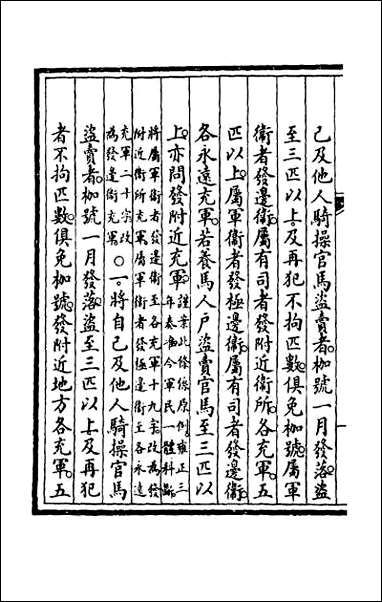 己及他人騎操官馬盜賣者枷號一月發落盜
至三匹以上及再犯不拘匹數俱免枷號屬軍
衛者發邊衛屬有司者發附近衛所各充軍五
匹以上屬軍衛者發極邊衛屬有司者發邊衛
各永遠充軍若養馬人戶盜賣官馬至三匹以
上亦問發附近充軍謹案此條係原例雍正三
年奏准今軍民一體科斷
將屬軍衛者發邊衛至各充軍十九字改為發
附近衛所充軍屬軍衛者發極邊衛至各永遠
充軍二十字改
為發邊衛充軍○一將自己及他人騎操官馬
盜賣者枷號一月發落盜至三匹以上及再犯
者不拘匹數俱免枷號發附近地方各充軍五